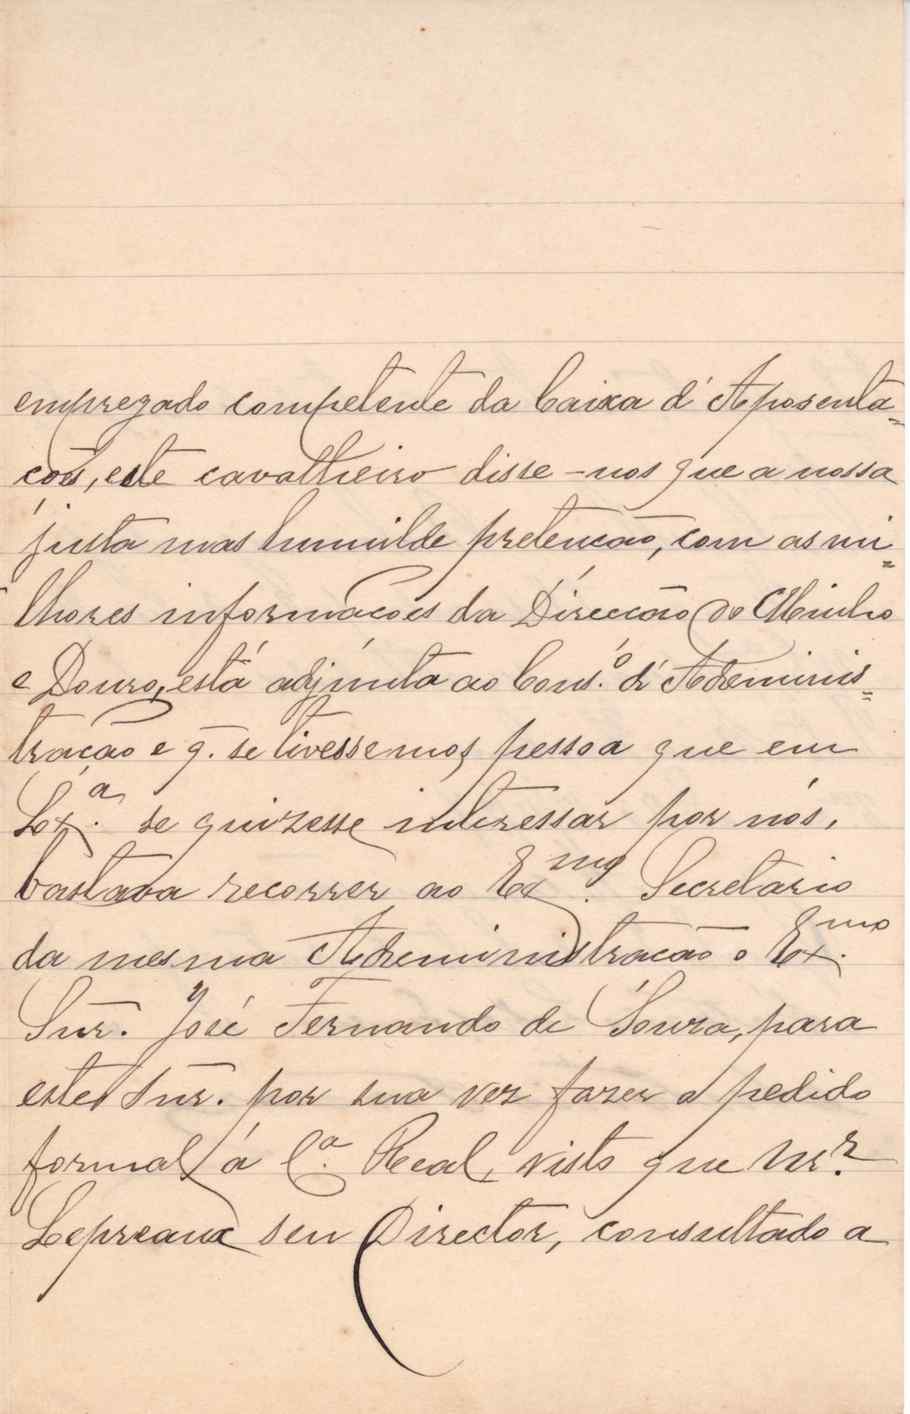 empregado competente da Caixa d'Aposenta=
ções, este cavalheiro disse-nos que a nossa
justa mas humilde pretenção, com as mi=
lhores informações da Direcção do Minho
e Douro, está adjunta ao Cons.º d'Ademinis=
tração e q̄. se tivessemos pessoa que em
Lxª. se quizesse interessar por nós,
bastava recorrer ao Exmo. Secretario
da mesma Adeministração o Exmo.
Snr. José Fernando de Souza, para
este Snr. por sua vez fazer o pedido
formal á C.ª Real, visto que Mr.
Lepreaux seu Director, consultado a